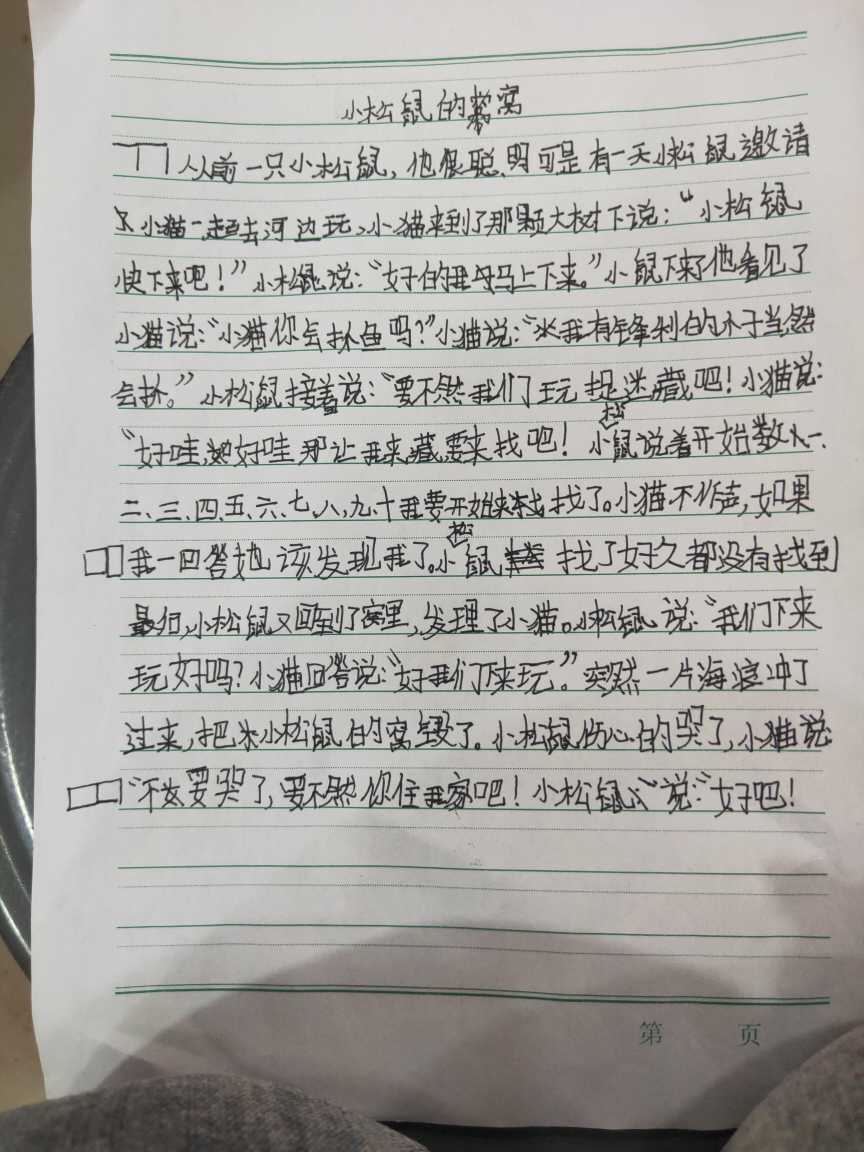 小松鼠的窝
从前一只小松鼠，他很聪明可是有一天小松鼠邀请
小猫一起去河边玩，小猫来到了那颗大树下说：“小松鼠
快下来吧！”小松鼠说：“好的我马上下来。”小鼠下来了他看见了
小猫说：“小猫你会抓鱼吗？”小猫说：“我有锋利的爪子当然
会抓。”小松鼠接着说：“要不然我们玩捉迷藏吧！小猫说：
“好哇，好哇那让我来藏要来找吧！小松鼠说着开始数人一、
二、三、四、五、六、七、八、九、十我要开始找了。小猫不作声，如果
我一回答他该发现我了。小松鼠找了好久都没有找到
最后，小松鼠又回到了窝里，发理了小猫。小松鼠说：“我们下来
玩好吗？小猫回答说：“好我们下来玩。”突然一片海浪冲了
过来，把小松鼠的窝毁了。小松鼠伤心的哭了，小猫说：
“不要哭了，要不然你住我家吧！小松鼠说：“好吧！
第 页